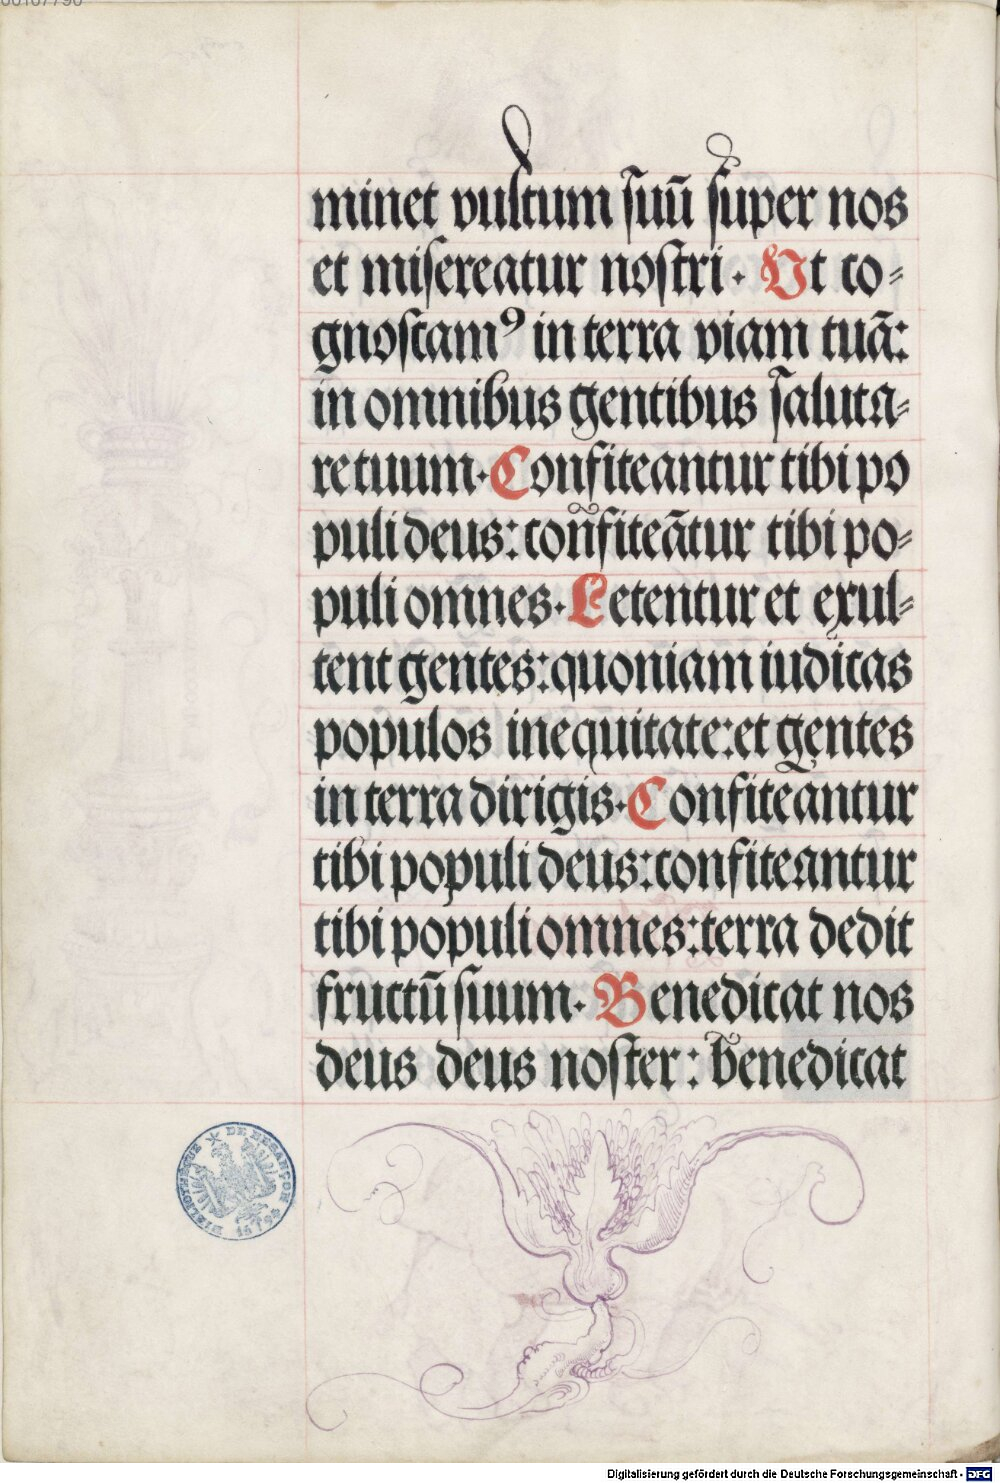 minet vultum suū super nos
et misereatur nostri · Ut co⸗
gnoscamꝰ in terra viam tuā:
in omnibus gentibus saluta⸗
re tuum · Confiteantur tibi po
puli deus: cōnfiteātur tibi po⸗
puli omnes · Letentur et exul⸗
tent gentes: quoniam iudicas
populos in equitate: et gentes
in terra dirigis · Confiteantur
tibi populi deus: confiteantur
tibi populi omnes: terra dedit
fructū suum · Benedicat nos
deus deus noster: benedicat
BIBLIOTHEQUE DE BESANÇON
Digitalisierung gefördert durch die Deutsche Forschungsgemeinschaft - DFG